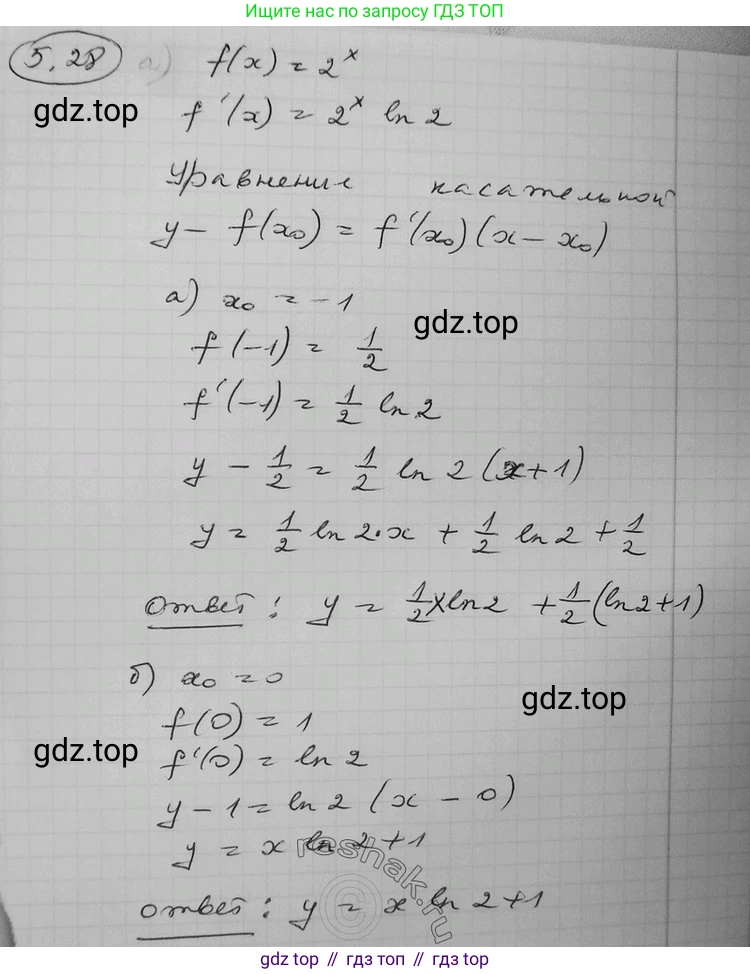 Ищите нас по запросу ГДЗ ТОП
5,28 а) f(x) = 2^x
gdz.top
f'(x) = 2^x ln 2
Уравнение касательной
y - f(x₀) = f'(x₀)(x - x₀)
а) x₀ = -1
gdz.top
f(-1) = 1/2
f'(-1) = 1/2 ln 2
y - 1/2 = 1/2 ln 2 (x+1)
y = 1/2 ln 2·x + 1/2 ln 2 + 1/2
Ответ: y = 1/2 x ln 2 + 1/2 (ln 2+1)
б) x₀ = 0
gdz.top
f(0) = 1
gdz.top
f'(0) = ln 2
y - 1 = ln 2 (x - 0)
y = x ln 2 + 1
reshak.ru
ответ: y = x ln 2+1
gdz.top // гдз топ // gdz top